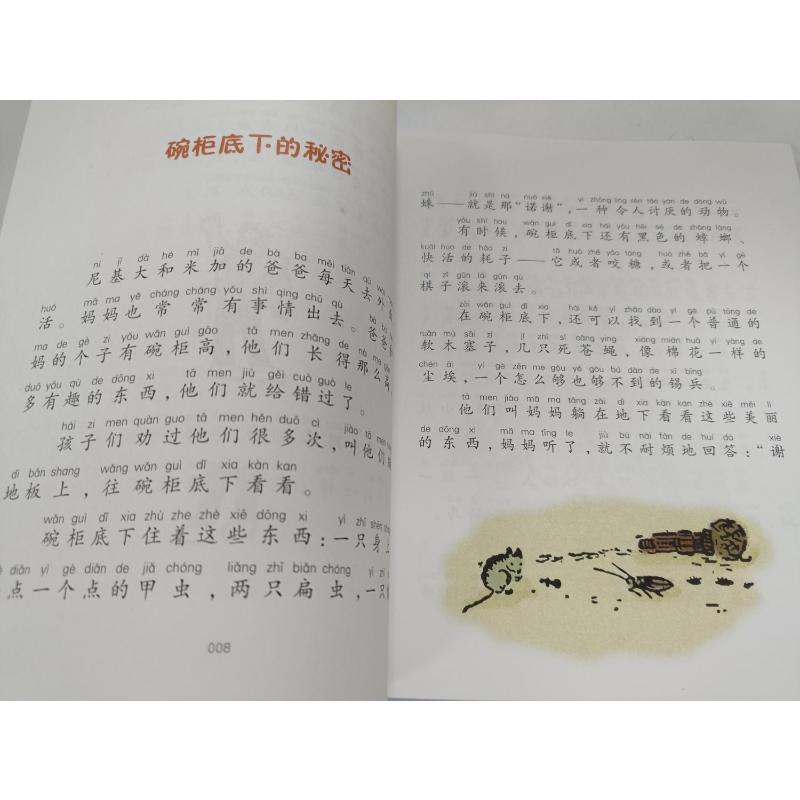 碗柜底下的秘密
ní jī dà hé mǐ jiā de bà ba měi tiān qù wài
尼基大和米加的爸爸每天去外
huó mā ma yě cháng cháng yǒu shì qing chū qù bà ba
活。妈妈也常常有事情出去。爸爸
ma de gè zi yǒu wǎn guì gāo tā men zhǎng de nà me
妈的个子有碗柜高，他们长得那么高
duō yǒu qù de dōng xi tā men jiù gěi cuò guò le
多有趣的东西，他们就给错过了。
hái zi men quàn guo tā men hěn duō cì jiào tā men
孩子们劝过他们很多次，叫他们
dì bǎn shang wǎng wǎn guì dǐ xia kàn kan
地板上，往碗柜底下看看。
wǎn guì dǐ xia zhù zhe zhè xiē dōng xi yì zhī shēn shang
碗柜底下住着这些东西：一只身上
diǎn yí gè diǎn de jiǎ chóng liǎng zhī biǎn chóng yì zhī
点一个点的甲虫，两只扁虫，一只
008
zhū jiù shì nà nuò xiè yì zhǒng lìng rén tǎo yàn de dòng wù
蛛——就是那“诺谢”，一种令人讨厌的动物。
yǒu shí hou wǎn guì dǐ xia hái yǒu hēi sè de zhāng láng
有时候，碗柜底下还有黑色的蟑螂、
kuài huo de hào zi tā huò zhě yǎo táng huò zhě bǎ yí gè
快活的耗子——它或者咬糖，或者把一个
qí zǐ gǔn lái gǔn qù
棋子滚来滚去。
zài wǎn guì dǐ xia hái kě yǐ zhǎo dào yí gè pǔ tōng de
在碗柜底下，还可以找到一个普通的
ruǎn mù sāi zi jǐ zhī sǐ cāng ying xiàng mián huā yí yàng de
软木塞子，几只死苍蝇，像棉花一样的
chén āi yí gè zěn me gòu yě gòu bú dào de xī bīng
尘埃，一个怎么够也够不到的锡兵。
tā men jiào mā ma tǎng zài dì xia kàn kan zhè xiē měi lì
他们叫妈妈躺在地下看看这些美丽
de dōng xi mā ma tīng le jiù bú nài fán de huí dá xiè
的东西，妈妈听了，就不耐烦地回答：“谢